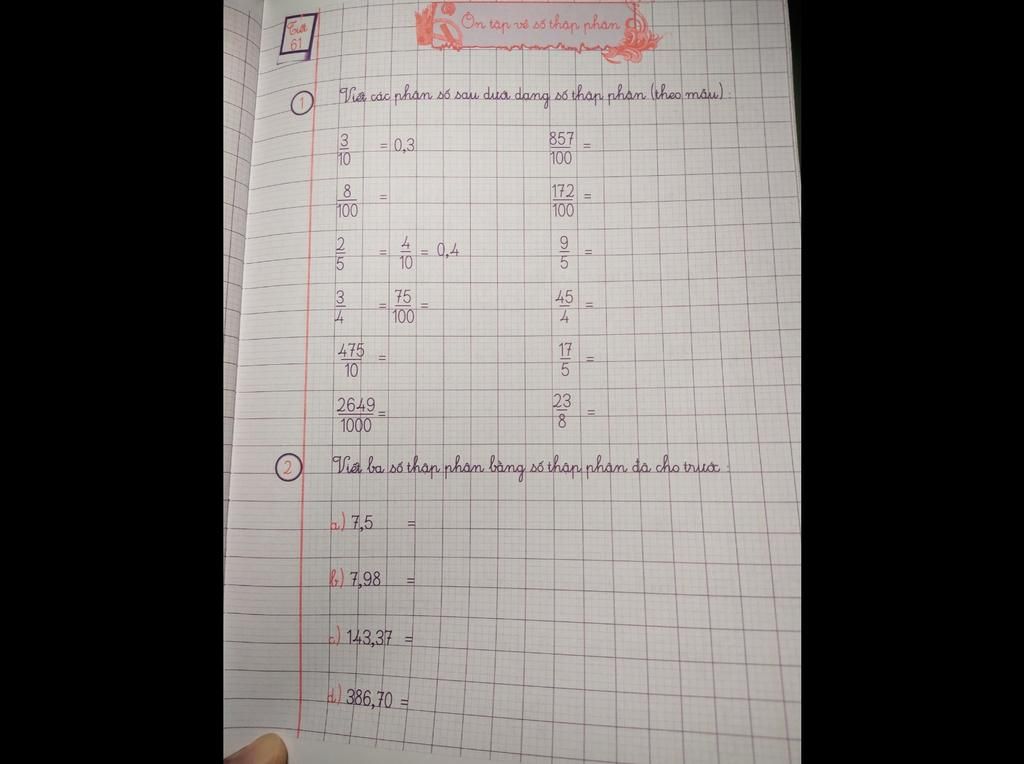 Tiết
61
Ôn tập về số thập phân
1 Viết các phân số sau dưới dạng số thập phân (theo mẫu):
3/10 = 0,3 857/100 =
8/100 = 172/100 =
2/5 = 4/10 = 0,4 9/5 =
3/4 = 75/100 = 45/4 =
475/10 = 17/5 =
2649/1000 = 23/8 =
2 Viết ba số thập phân bằng số thập phân đã cho trước:
a) 7,5 =
b) 7,98 =
c) 143,37 =
d) 386,70 =